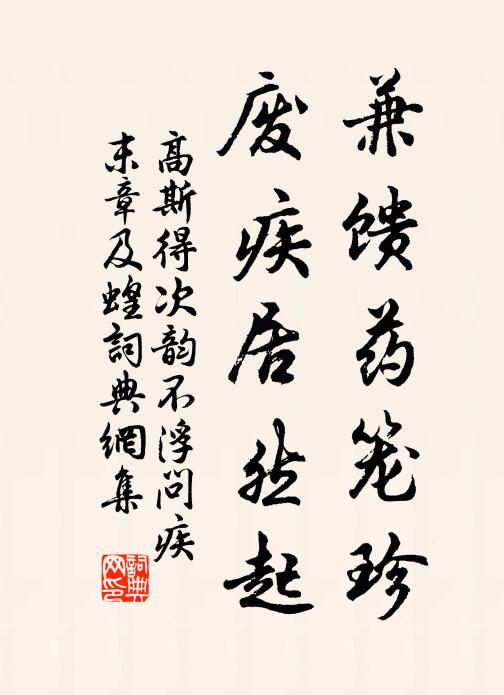 兼馈药笼珍
废疾居然起
高斯得次韵不浮问疾
末章及蝗詞典網集
詞典网印